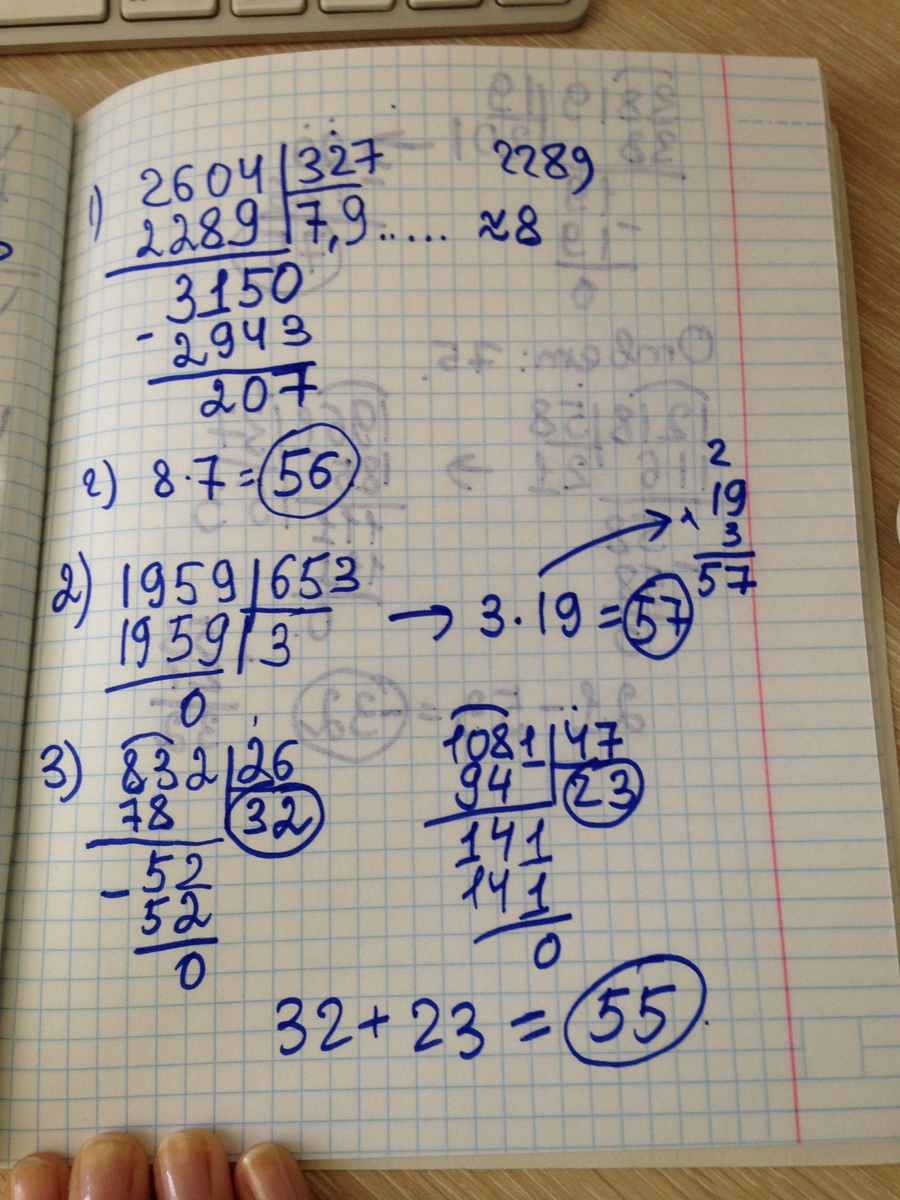 1) 2604 327 2289
2289 7,9..... ≈8
3150
- 2943
207
2) 8·7=56
2
× 19
3
57
2) 1959 653 → 3·19=57
1959 3
0
3) 832 26 1081 47
78 32 94 23
- 52 141
52 141
0 0
32+23=55.